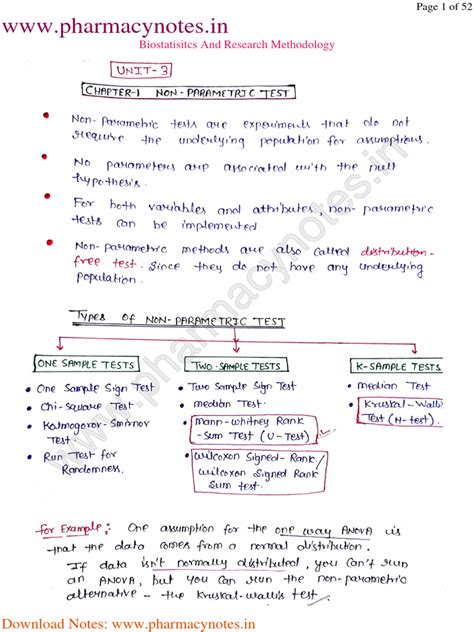 Page 1 of 52
www.pharmacynotes.in
Biostatisitcs And Research Methodology
UNIT-3
CHAPTER-1 NON-PARAMETRIC TEST
• Non-Parametric tests are experiments that do not
require the underlying population for assumptions.
• No parameters are associated with the null
hypothesis.
• For both variables and attributes, non-parametric
tests can be implemented.
• Non-parametric methods are also called distribution-
free test. Since they do not have any underlying
population.
Types of NON-PARAMETRIC TEST
ONE SAMPLE TESTS
• One Sample Sign Test
• Chi-Square Test
• Kolmogorov-Smirnov
Test
• Run Test for
Randomness.
TWO-SAMPLE TESTS
• Two Sample Sign Test
• median Test
• mann-whitney Rank
-Sum Test (U-Test)
• wilcoxon Signed-Rank/
wilcoxon Signed Rank
Sum test.
K-SAMPLE TESTS
• median Test
• Kruskal-Wallis
Test (H-test)
For Example: One assumption for the one way ANOVA is
that the data comes from a normal distribution.
If data isn't normally distributed, you can't run
an ANOVA, but you can run the non-parametric
alternative - the Kruskal-wallis test.
www.pharmacynotes.in
Download Notes: www.pharmacynotes.in